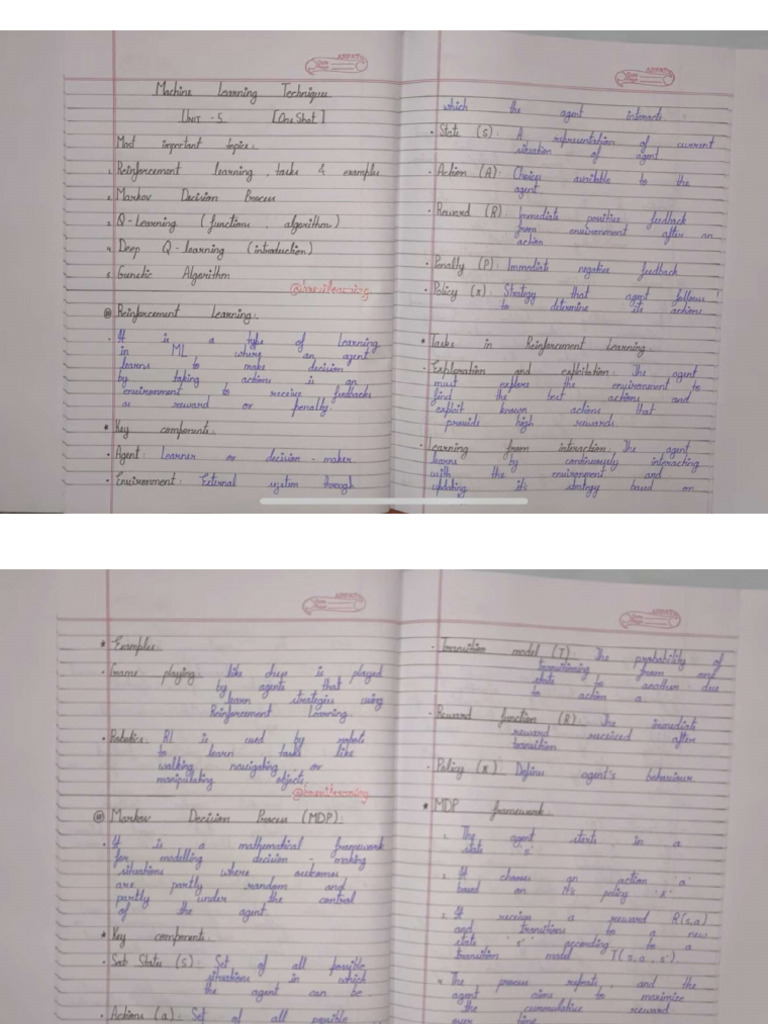 Machine Learning Techniques
UNIT - 5 [One Shot]
Most important topics:
1. Reinforcement learning, tasks & examples
2. Markov Decision Process
3. Q-Learning (functions, algorithm)
4. Deep Q-learning (introduction)
5. Genetic Algorithm
Reinforcement Learning:
• It is a type of learning
in ML where an agent
learns to make decision
by taking actions is an
environment to receive feedbacks
as reward or penalty.
* Key components:
• Agent: Learner or decision-maker
• Environment: External system through
which the agent interacts.
• State (S): A representation of current
situation of agent
• Action (A): Choices available to the
agent
• Reward (R): Immediate positive feedback
from environment after an
action
• Penalty (P): Immediate negative feedback
• Policy (π): Strategy that agent follows
to determine its actions
* Tasks in Reinforcement Learning:
• Exploration and exploitation: The agent
must explore the environment to
find the best actions and
exploit known actions that
provide high rewards
• Learning from interaction: The agent
learns by continuously interacting
with the environment and
updating it's strategy based on
* Examples:
• Game playing: like chess is played
by agents that
learn strategies using
Reinforcement Learning.
• Robotics: RL is used by robots
to learn tasks like
walking navigating or
manipulating objects.
Markov Decision Process (MDP):
• It is a mathematical framework
for modelling decision-making
situations where outcomes
are partly random and
partly under the control
of the agent.
* Key components:
• States (S): Set of all possible
situations in which
the agent can be.
• Actions (a): Set of all possible
• Transition model (T): The probability of
transitioning from one
state to another due
to action a.
• Reward function (R): The immediate
reward received after
transition
• Policy (π): Defines agent's behaviour
* MDP framework:
1. The agent starts in a
state 's'
2. It chooses an action 'a'
based on its policy 'π'
3. It receives a reward R(s,a)
and transitions to a new
state s' according to a
transition model T(s,a,s')
4. The process repeats, and the
agent aims to maximize
the cummulative reward
over time